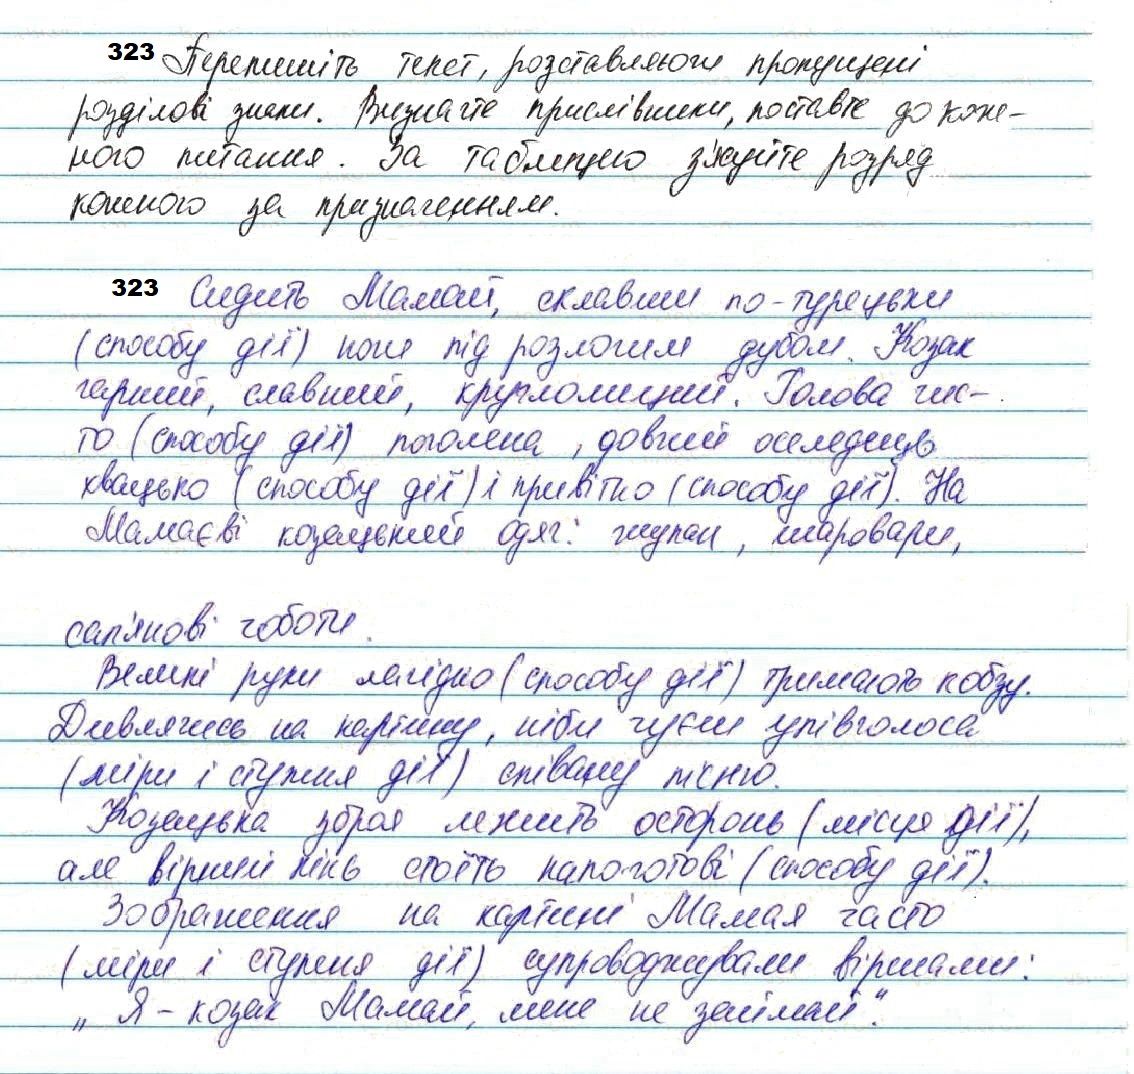 323 Перепишіть текст, розставляючи пропущені
розділові знаки. Визначте прислівники, поставте до кож-
ного питання. За таблицею з'ясуйте розряд
кожного за призначенням.
323 Сидить Мамай, склавши по-турецьки
(способу дії) ноги під розлогим дубом. Козак
гарний, славний, круглолиций. Голова чис-
то (способу дії) поголена, довгий оселедець
хвацько (способу дії) і привітно (способу дії). На
Мамаєві козацький одяг: жупан, шаровари,
сап'янові чоботи.
Великі руки лагідно (способу дії) тримають кобзу.
Дивлячись на картину, ніби чуєш упівголоса
(міри і ступеня дії) співану пісню.
Козацька зброя лежить осторонь (місця дії),
але вірний кінь стоїть напоготові (способу дії).
Зображення на картині Мамая часто
(міри і ступеня дії) супроводжували віршами:
„Я – козак Мамай, мене не займай".